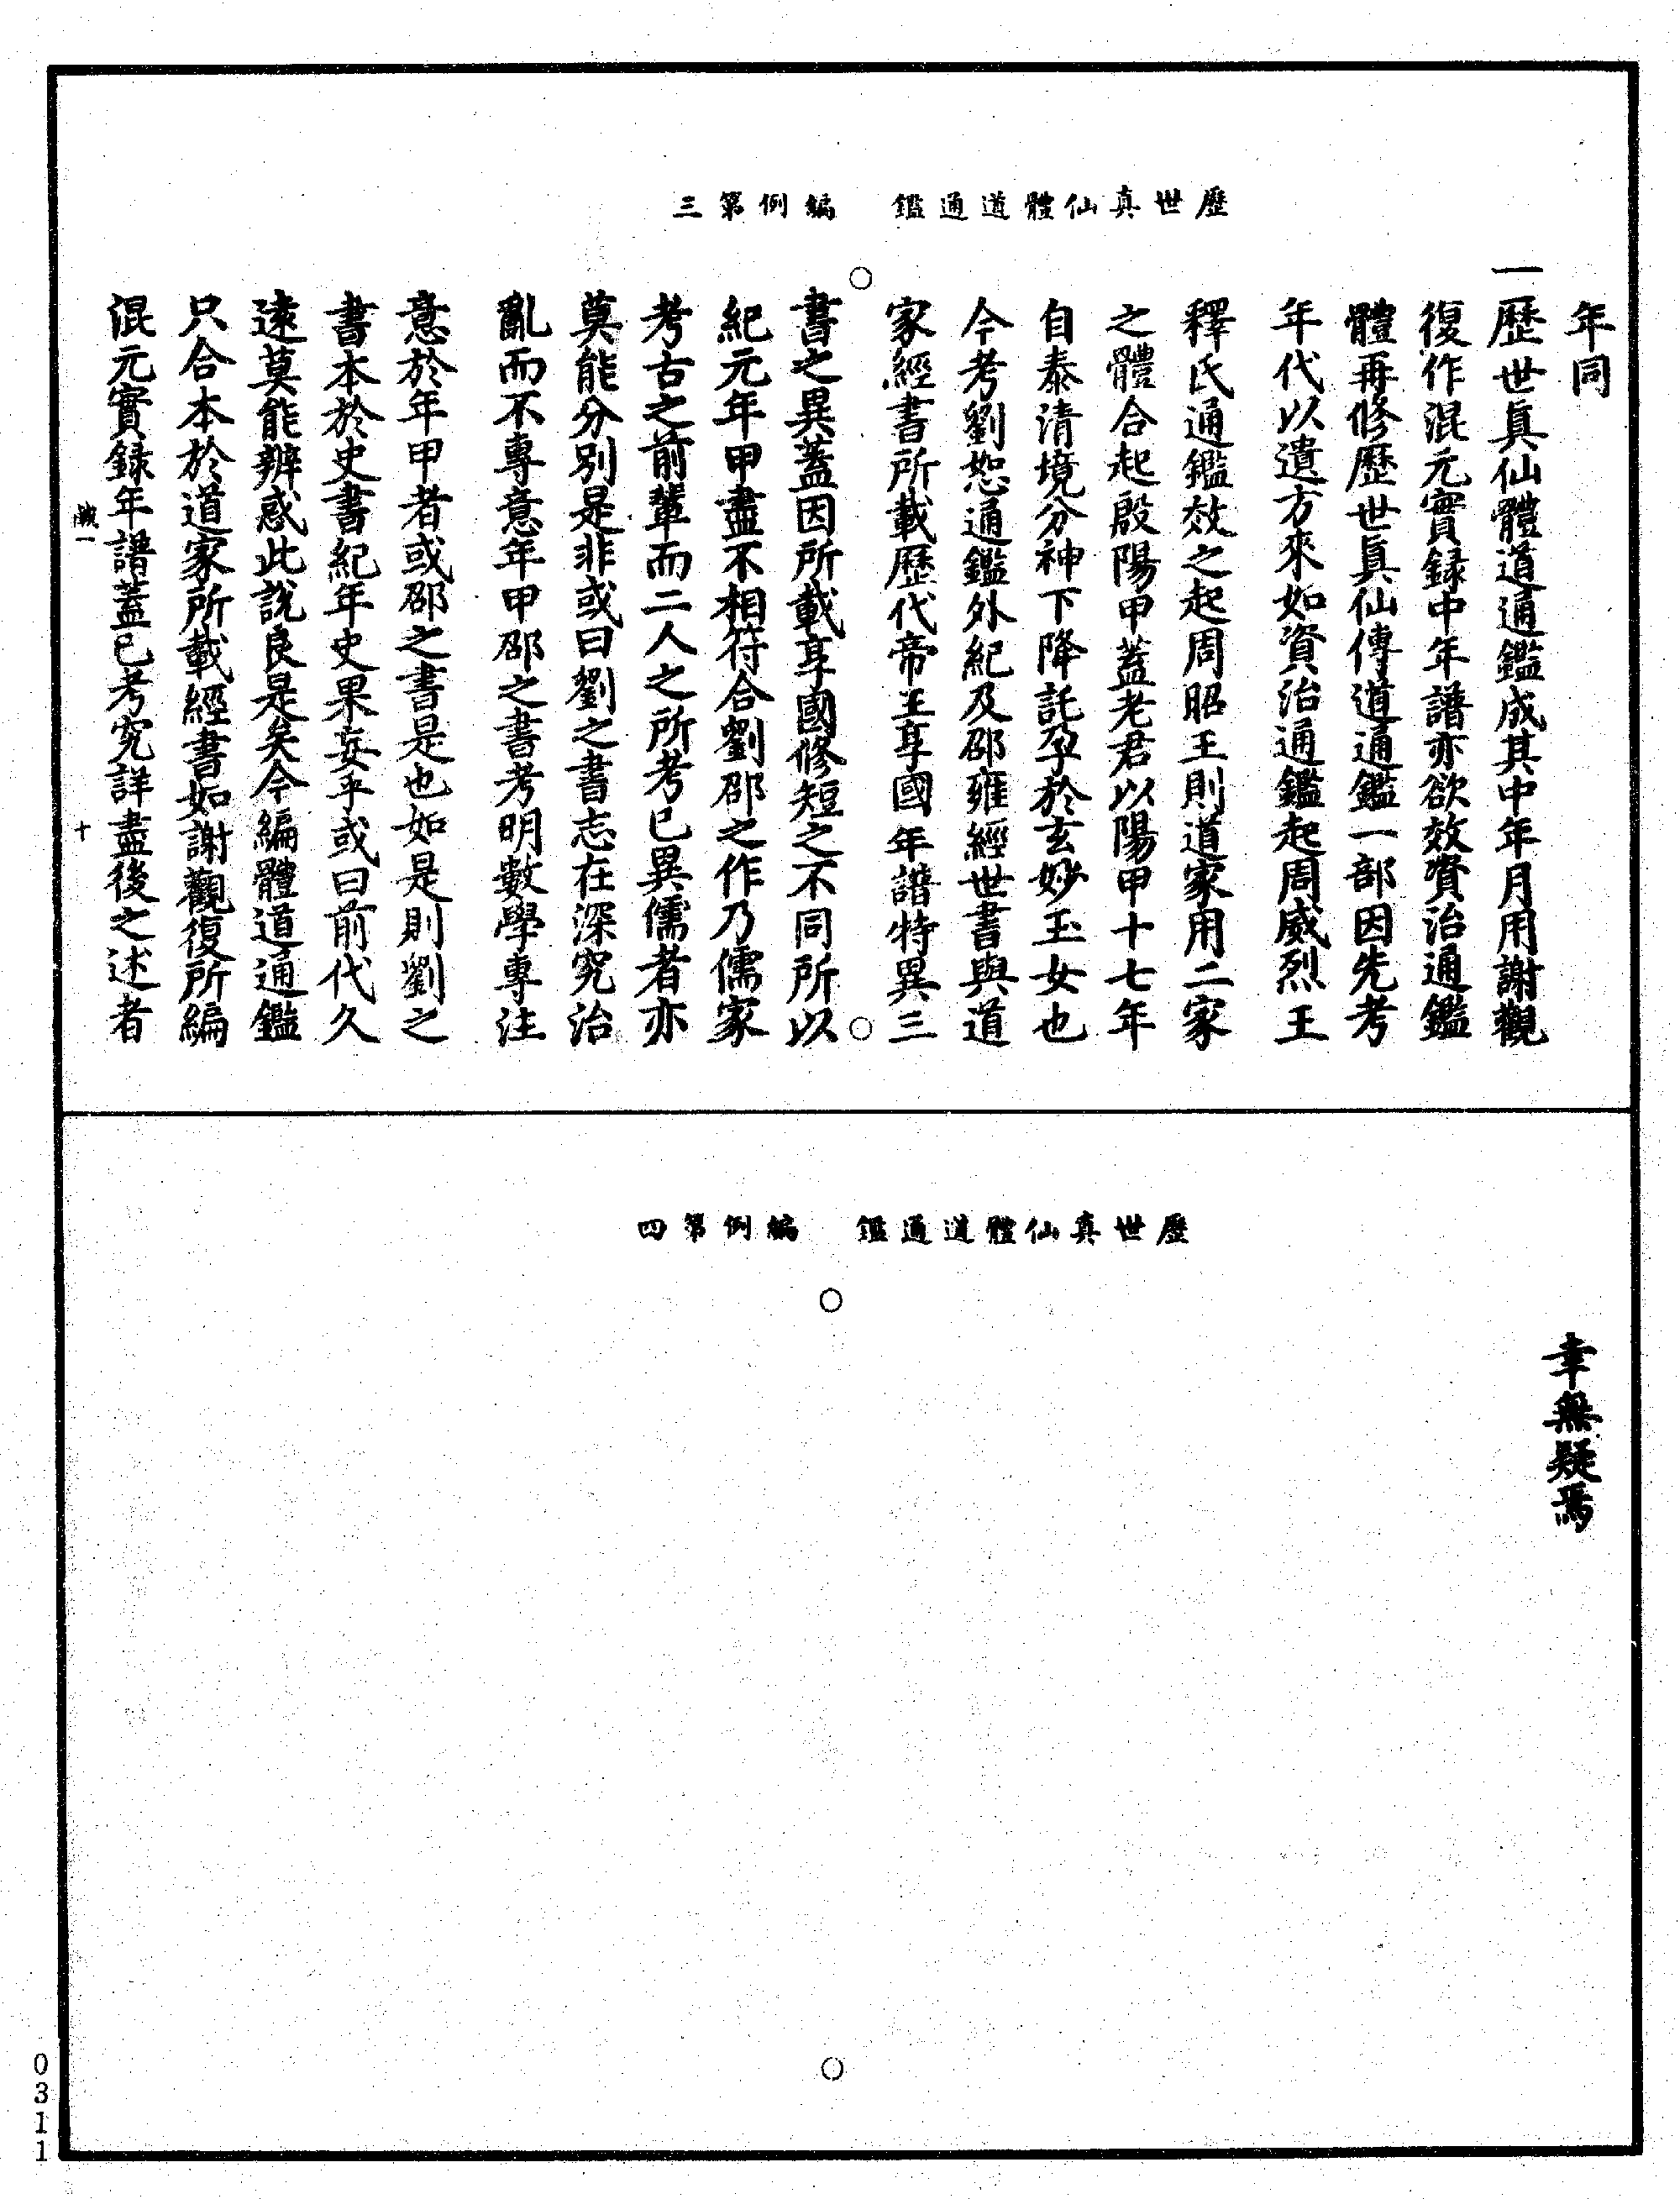 歷世真仙體道通鑑　編例第三
年同
一歷世真仙體道通鑑成其中年月用謝觀
復作混元實録中年譜亦欲效資治通鑑
體再修歷世真仙傳道通鑑一部因先考
年代以遺方來如資治通鑑起周威烈王
釋氏通鑑效之起周昭王則道家用二家
之體合起殷陽甲蓋老君以陽甲十七年
自泰清境分神下降託孕於玄妙玉女也
今考劉恕通鑑外紀及邵雍經世書與道
家經書所載歷代帝王享國年譜特異三
書之異蓋因所載享國修短之不同所以
紀元年甲盡不相符合劉邵之作乃儒家
考古之前輩而二人之所考已異儒者亦
莫能分別是非或曰劉之書志在深究治
亂而不專意年甲邵之書考明數學專注
意於年甲者或邵之書是也如是則劉之
書本於史書紀年史果妄乎或曰前代久
遠莫能辨惑此說良是矣今編體道通鑑
只合本於道家所載經書如謝觀復所編
混元實録年譜蓋已考究詳盡後之述者
鹹一　十
歷世真仙體道通鑑　編例第四
幸無疑焉
0311